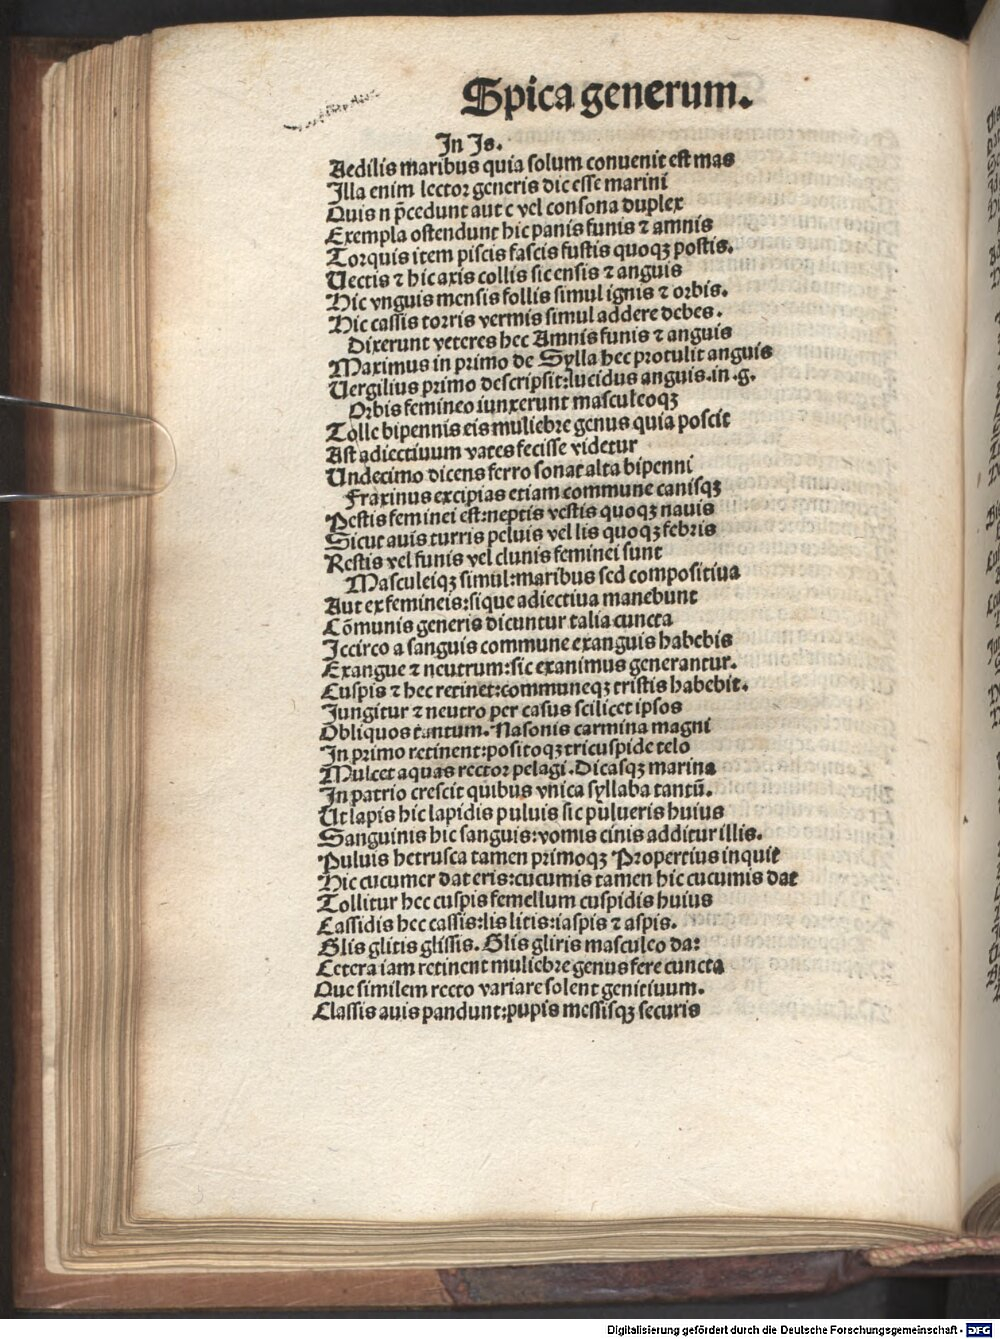 Spica generum.
In Is.
Aedilis maribus quia solum conuenit est mas
Illa enim lector generis dic esse marini
Quis n p̄cedunt aut c vel consona duplex
Exempla ostendunt hic panis funis ⁊ amnis
Torquis item piscis fascis fustis quoqꝫ postis.
Uectis ⁊ hic axis collis sic ensis ⁊ anguis
Hic vnguis mensis follis simul ignis ⁊ orbis.
Hic cassis torris vermis simul addere debes.
Dixerunt veteres hec Amnis funis ⁊ anguis
Maximus in primo de Sylla hec protulit anguis
Uergilius primo descripsit:lucidus anguis.in .g.
Orbis femineo iunxerunt masculeoqꝫ
Tolle bipennis eis muliebre genus quia poscit
Ast adiectiuum vates fecisse videtur
Undecimo dicens ferro sonat alta bipenni
Fraxinus excipias etiam commune canisqꝫ
Pestis feminei est:neptis vestis quoqꝫ nauis
Sicut auis turris peluis vel lis quoqꝫ febris
Restis vel funis vel clunis feminei sunt
Masculeiqꝫ simul:maribus sed compositiua
Aut ex femineis:sique adiectiua manebunt
Cōmunis generis dicuntur talia cuncta
Iccirco a sanguis commune exanguis habebis
Exangue ⁊ neutrum:sic exanimus generantur.
Cuspis ⁊ hec retinet:communeqꝫ tristis habebit.
Iungitur ⁊ neutro per casus scilicet ipsos
Obliquos tantum. Nasonis carmina magni
In primo retinent:positoqꝫ tricuspide telo
Mulcet aquas rector pelagi. Dicasqꝫ marina
In patrio crescit quibus vnica syllaba tantū.
Ut lapis hic lapidis puluis sic pulueris huius
Sanguinis hic sanguis:vomis cinis additur illis.
Puluis hetrusca tamen primoqꝫ Propertius inquit
Hic cucumer dat eris:cucumis tamen hic cucumis dat
Tollitur hec cuspis femellum cuspidis huius
Cassidis hec cassis:lis litis:iaspis ⁊ aspis.
Glis glitis glissis. Glis gliris masculeo da:
Cetera iam retinent muliebre genus fere cuncta
Que similem recto variare solent genitiuum.
Classis auis pandunt:pupis messisqꝫ securis
Digitalisierung gefördert durch die Deutsche Forschungsgemeinschaft - DFG